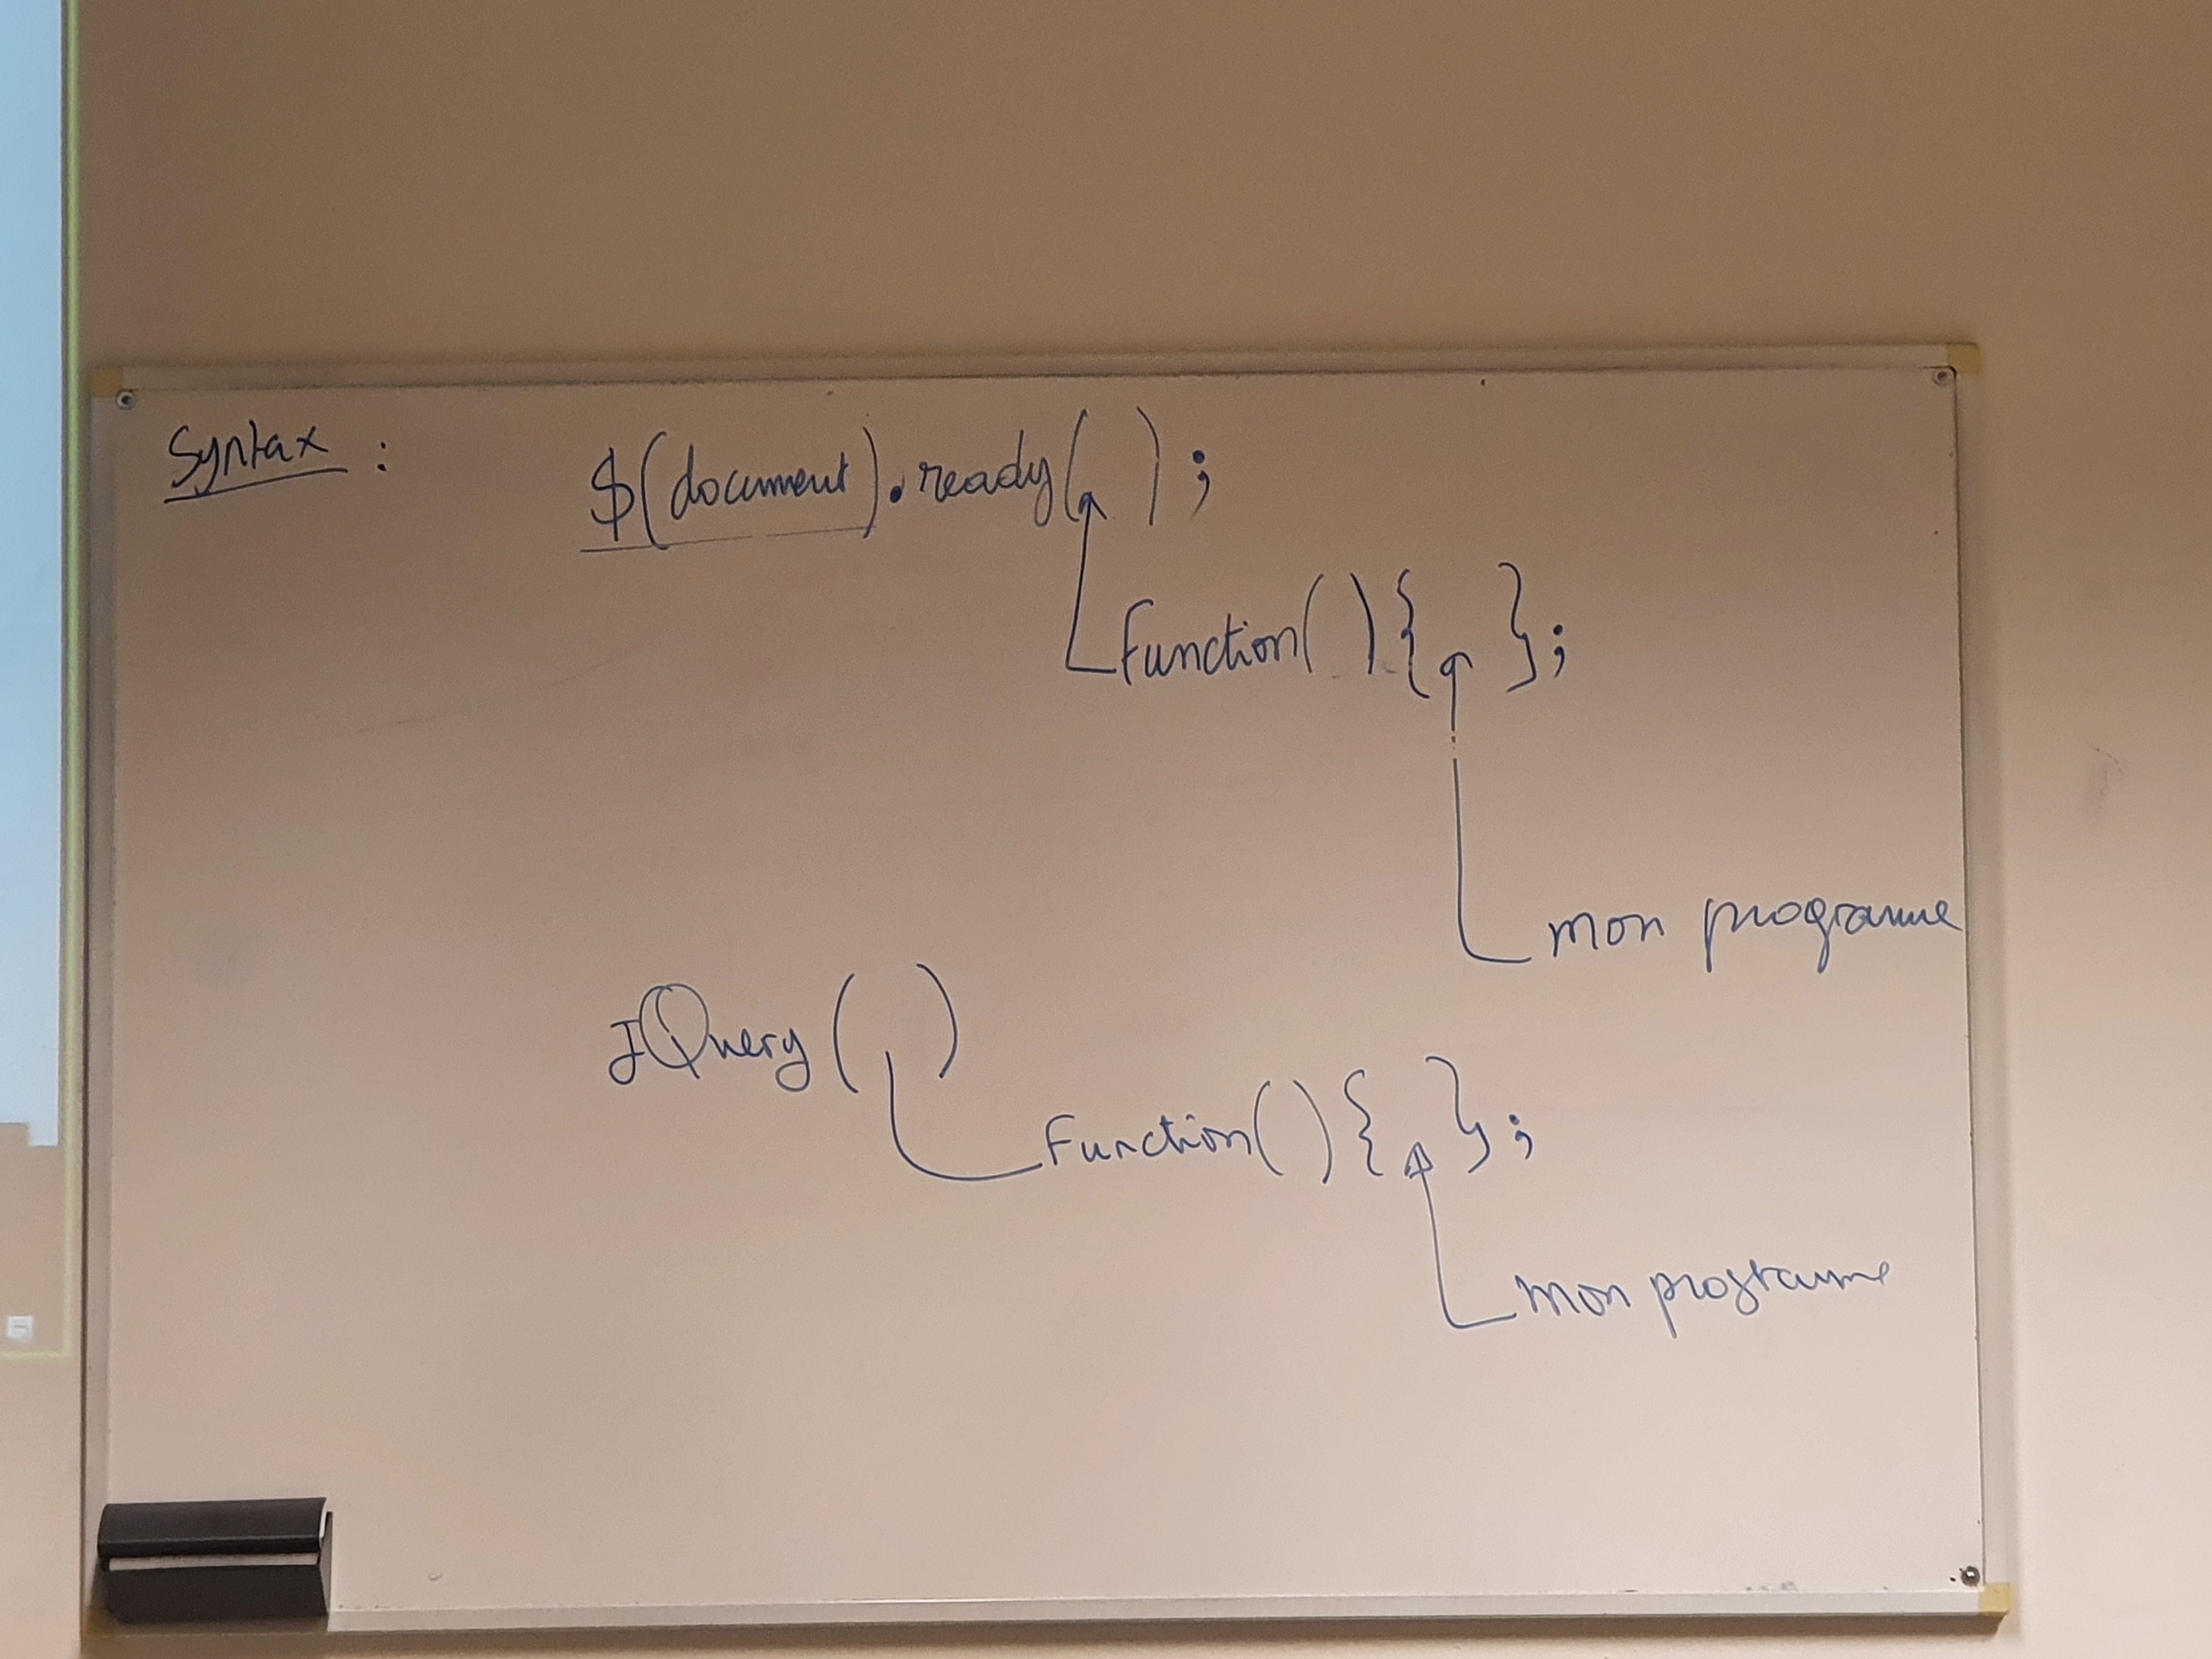 Syntax : $(document).ready( );
Function( ){ };
mon programme
JQuery ( )
Function( ){ };
mon programme